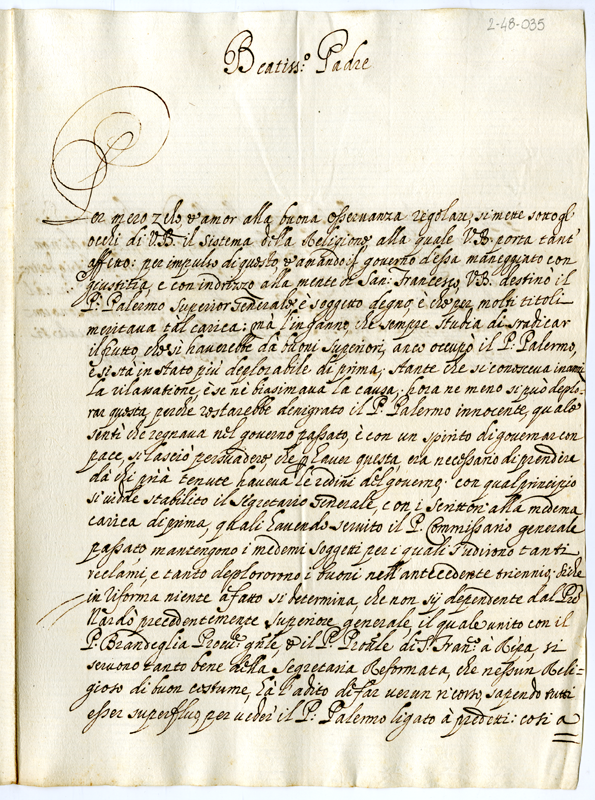 2-48-035
Beatiss.o Padre
Per mero zelo & amor alla buona osservanza regolare si mette sotto gl'
occhi di V.B. il sistema della Religione, alla quale V.B. porta tant'
affetto: per impulso di questo, & amando il governo d'essa maneggiato con
giustitia, e con indrizzo alla mente di San Francesco, V.B. destinò il
P. Palermo Superior Generale, e soggetto degno, e che per molti titoli
meritava tal carica: mà l'inganno, che sempre studia di sradicar
il frutto, che si haverebbe dà buoni Superiori, anco occupò il P. Palermo,
e si stà in stato più deplorabile di prima; stante che si conosceva inanzi
la rilassatione, e se nè biasimava la causa; hora ne meno si può deplo-
rar questa, perche restarebbe denigrato il P. Palermo innocente, quale
sentì che regnava nel governo passato, è con un spirito di governar con
pace, si lasciò persuadere, che p haver questa, era necessario di prendere
dà chi prià tenute haveva le redini del governo: con qual principio
si vidde stabilito il Segretario Generale, e con i Scrittori alla medema
carica di prima, quali havendo servito il P. Commissario generale
passato mantengono i medemi soggetti per i quali s'udirono tanti
reclami, e tanto deplororono i buoni nell'antecedente triennio;
in riforma niente à fatto si determina, che non sij dependente dal Pre
Nardò precedentemente Superiore generale, il quale unito con il
P. Brandeglia Procu.r gnle, & il P. Prouale di S. Fran.o à Ripa, si
servono tanto bene della Segretaria Reformata, che nessun Reli-
gioso di buon costume, hà l'adito di far verun ricorso, sapendo tutti
esser superfluo, per veder il P. Palermo ligato à predetti: così a